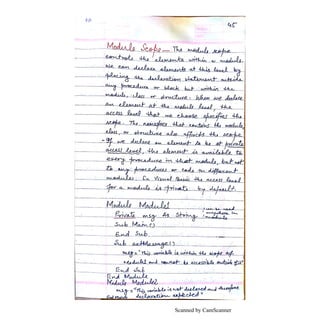 45
Module Scope — The module scope
controls the elements within a module.
We can declare elements at this level by
placing the declaration statement outside
any procedure or block but within the
module, class or structure. When we declare
an element at the module level, the
access level that we choose specifies the
scope. The namespace that contains the module,
class, or structure also affects the scope
- If we declare an element to be at private
access level, the element is available to
every procedure in that module, but not
to any procedures or code in different
modules. In Visual Basic the access level
for a module is private by default.
Module Module1
Private msg As String
Sub Main()
End Sub
Sub setMessage()
msg = "This variable is within the scope of
module1 and cannot be accessible outside of it"
End Sub
End Module
Module Module2
msg = "This variable is not declared and therefore
declaration expected"
Scanned by CamScanner